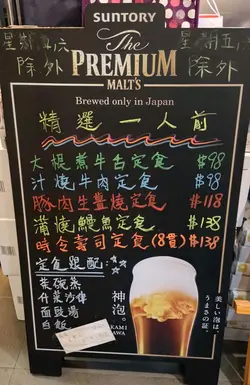 SUNTORY
星期六
除外
The
PREMIUM
MALT'S
星期五
除外
Brewed only in Japan
精選一人前
大根煮牛舌定食 $98
汁燒牛肉定食 $98
豚肉生薑燒定食 $118
蒲燒鰻魚定食 $138
時令壽司定食(8貫) $138
定食跟配:
茶碗蒸
什菜沙律
麵豉湯
神泡。
KAMI
AWA
美しい泡は、
うまさの証。